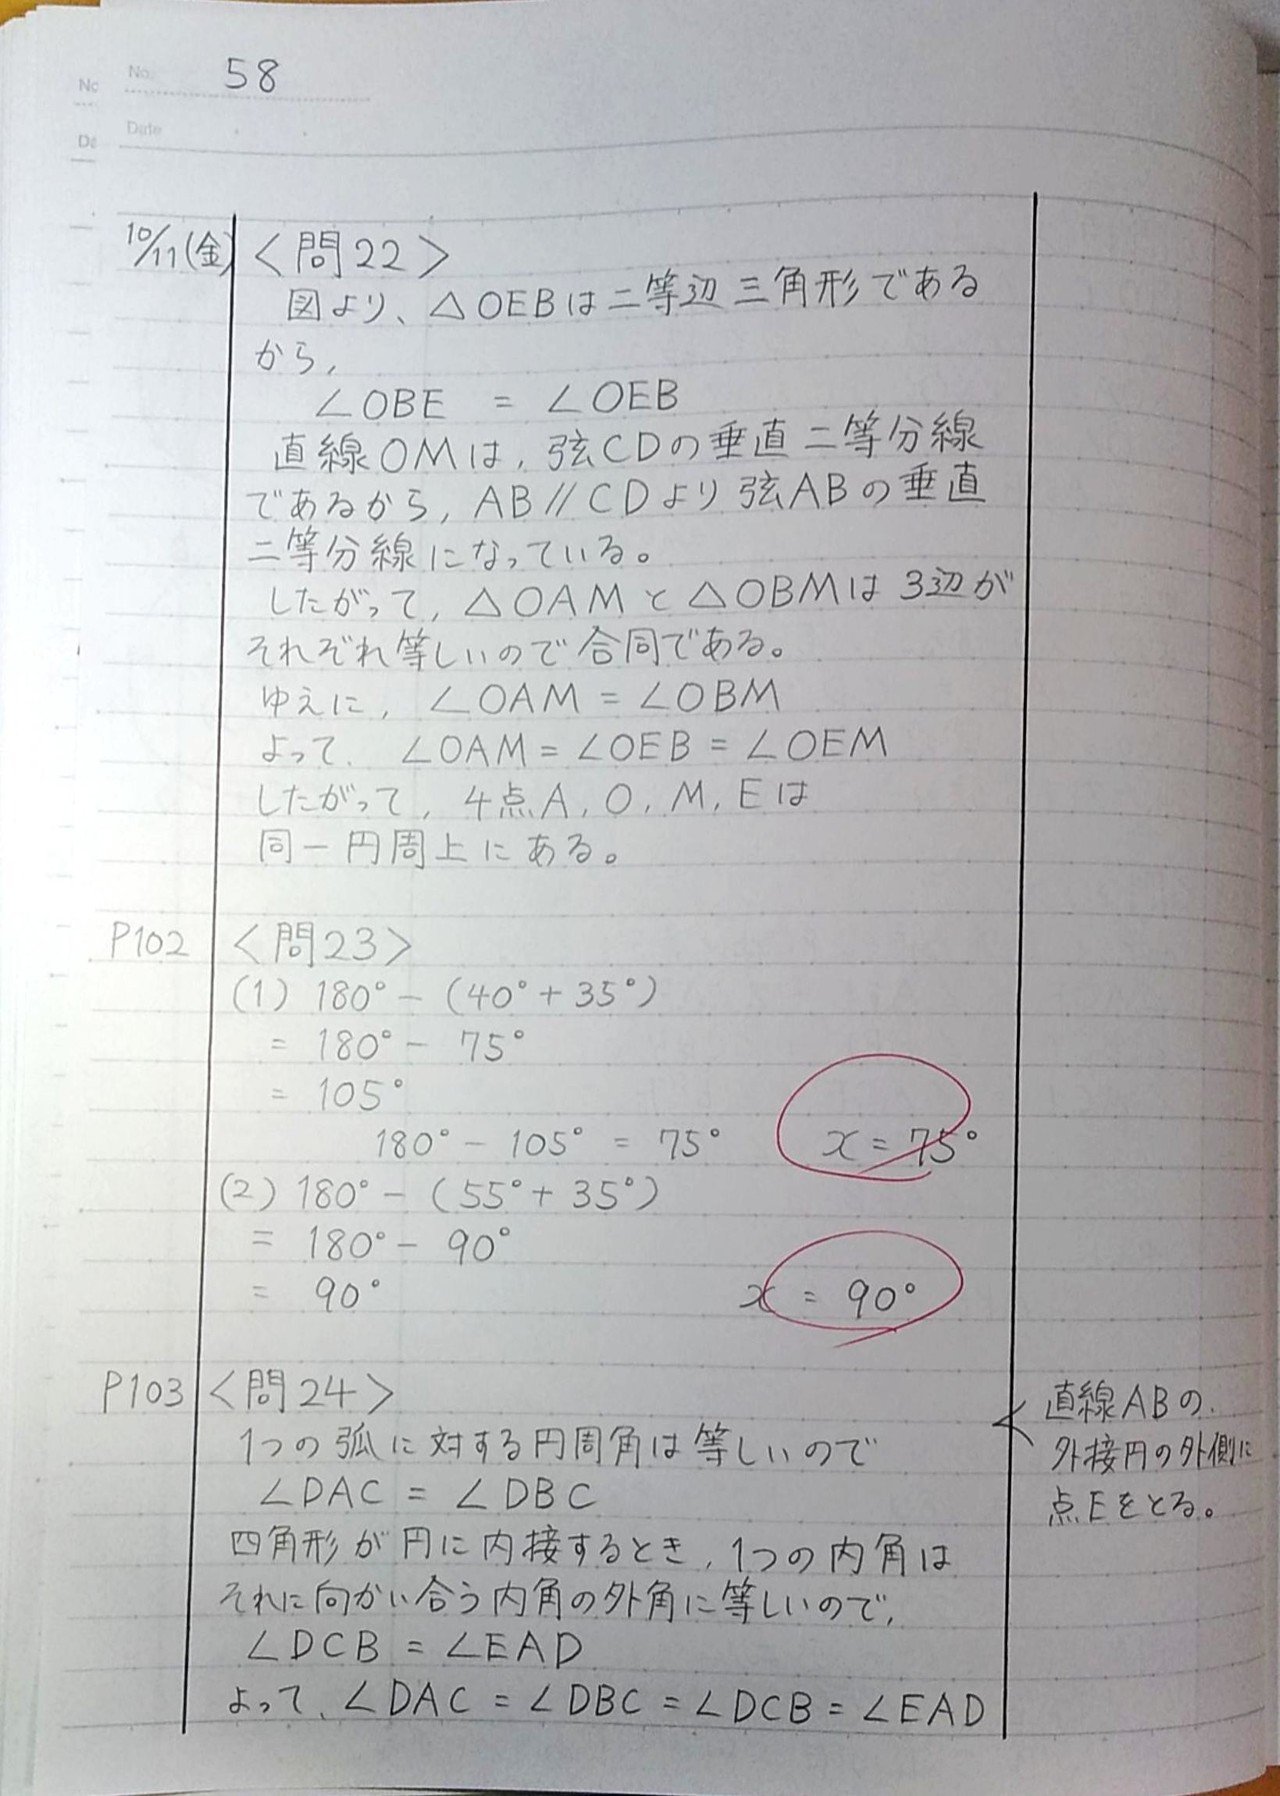 No. 58
No
Date
Da
10/11(金) <問22>
図より、△OEBは二等辺三角形である
から,
∠OBE = ∠OEB
直線OMは, 弦CDの垂直二等分線
であるから, AB // CDより弦ABの垂直
二等分線になっている。
したがって, △OAMと△OBMは3辺が
それぞれ等しいので合同である。
ゆえに, ∠OAM = ∠OBM
よって, ∠OAM = ∠OEB = ∠OEM
したがって, 4点A, O, M, Eは
同一円周上にある。
P102 <問23>
(1) 180° - (40° + 35°)
= 180° - 75°
= 105°
180° - 105° = 75° x = 75°
(2) 180° - (55° + 35°)
= 180° - 90°
= 90° x = 90°
P103 <問24>
1つの弧に対する円周角は等しいので
∠DAC = ∠DBC
四角形が円に内接するとき, 1つの内角は
それに向かい合う内角の外角に等しいので,
∠DCB = ∠EAD
よって, ∠DAC = ∠DBC = ∠DCB = ∠EAD
直線ABの,
外接円の外側に
点Eをとる。